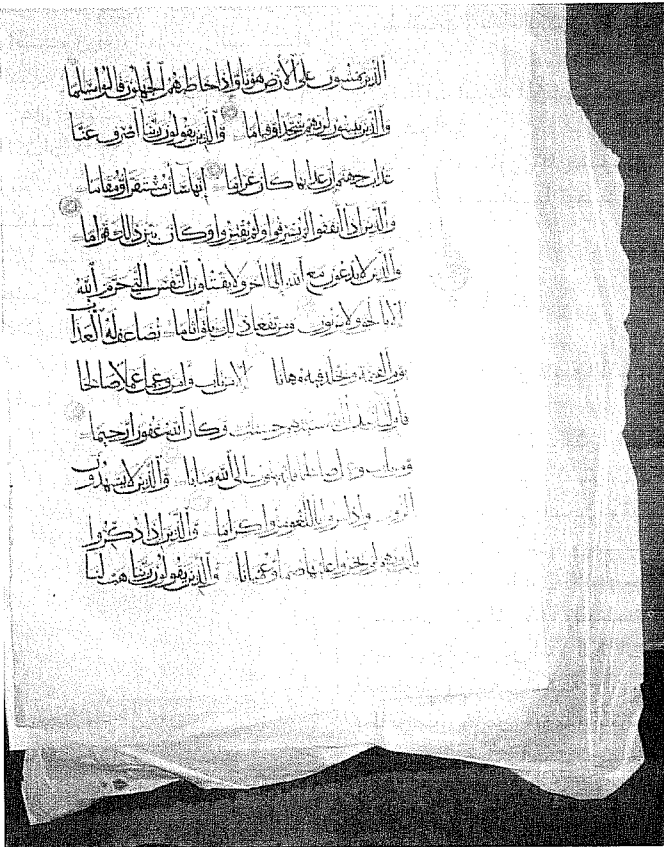 الذين يمشون على الأرض هونا وإذا خاطبهم الجهلون قالوا سلما
والذين يبيتون لربهم سجدا وقياما والذين يقولون ربنا اصرف عنا
عذاب جهنم إن عذابها كان غراما إنها ساءت مستقرا ومقاما
والذين إذا أنفقوا لم يسرفوا ولم يقتروا وكان بين ذلك قواما
والذين لا يدعون مع الله إلها آخر ولا يقتلون النفس التي حرم الله
إلا بالحق ولا يزنون ومن يفعل ذلك يلق أثاما يضاعف له العذاب
يوم القيمة ويخلد فيه مهانا إلا من تاب وآمن وعمل عملا صالحا
فأولئك يبدل الله سيئاتهم حسنات وكان الله غفورا رحيما
ومن تاب وعمل صالحا فإنه يتوب إلى الله متابا والذين لا يشهدون
الزور وإذا مروا باللغو مروا كراما والذين إذا ذكروا
بآيات ربهم لم يخروا عليها صما وعميانا والذين يقولون ربنا هب لنا